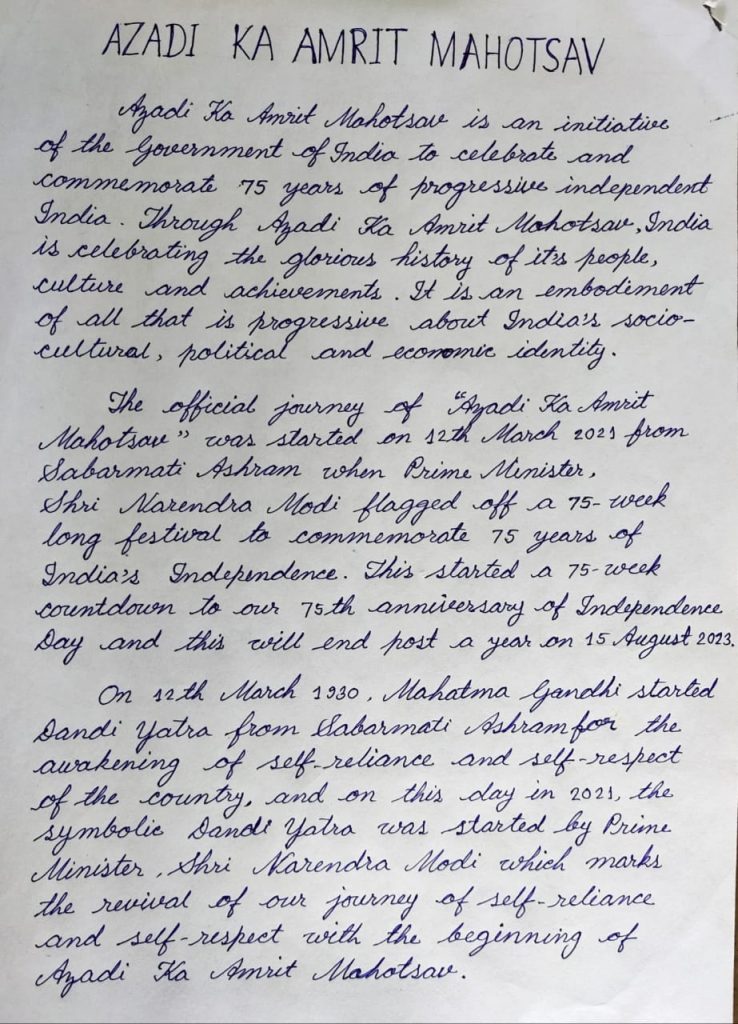 AZADI KA AMRIT MAHOTSAV
Azadi Ka Amrit Mahotsav is an initiative
of the Government of India to celebrate and
commemorate 75 years of progressive independent
India. Through Azadi Ka Amrit Mahotsav, India
is celebrating the glorious history of it's people,
culture and achievements. It is an embodiment
of all that is progressive about India's socio-
cultural, political and economic identity.
The official journey of "Azadi Ka Amrit
Mahotsav" was started on 12th March 2021 from
Sabarmati Ashram when Prime Minister,
Shri Narendra Modi flagged off a 75-week
long festival to commemorate 75 years of
India's Independence. This started a 75-week
countdown to our 75th anniversary of Independence
Day and this will end post a year on 15 August 2023.
On 12th March 1930, Mahatma Gandhi started
Dandi Yatra from Sabarmati Ashram for the
awakening of self-reliance and self-respect
of the country, and on this day in 2021, the
symbolic Dandi Yatra was started by Prime
Minister, Shri Narendra Modi which marks
the revival of our journey of self-reliance
and self-respect with the beginning of
Azadi Ka Amrit Mahotsav.